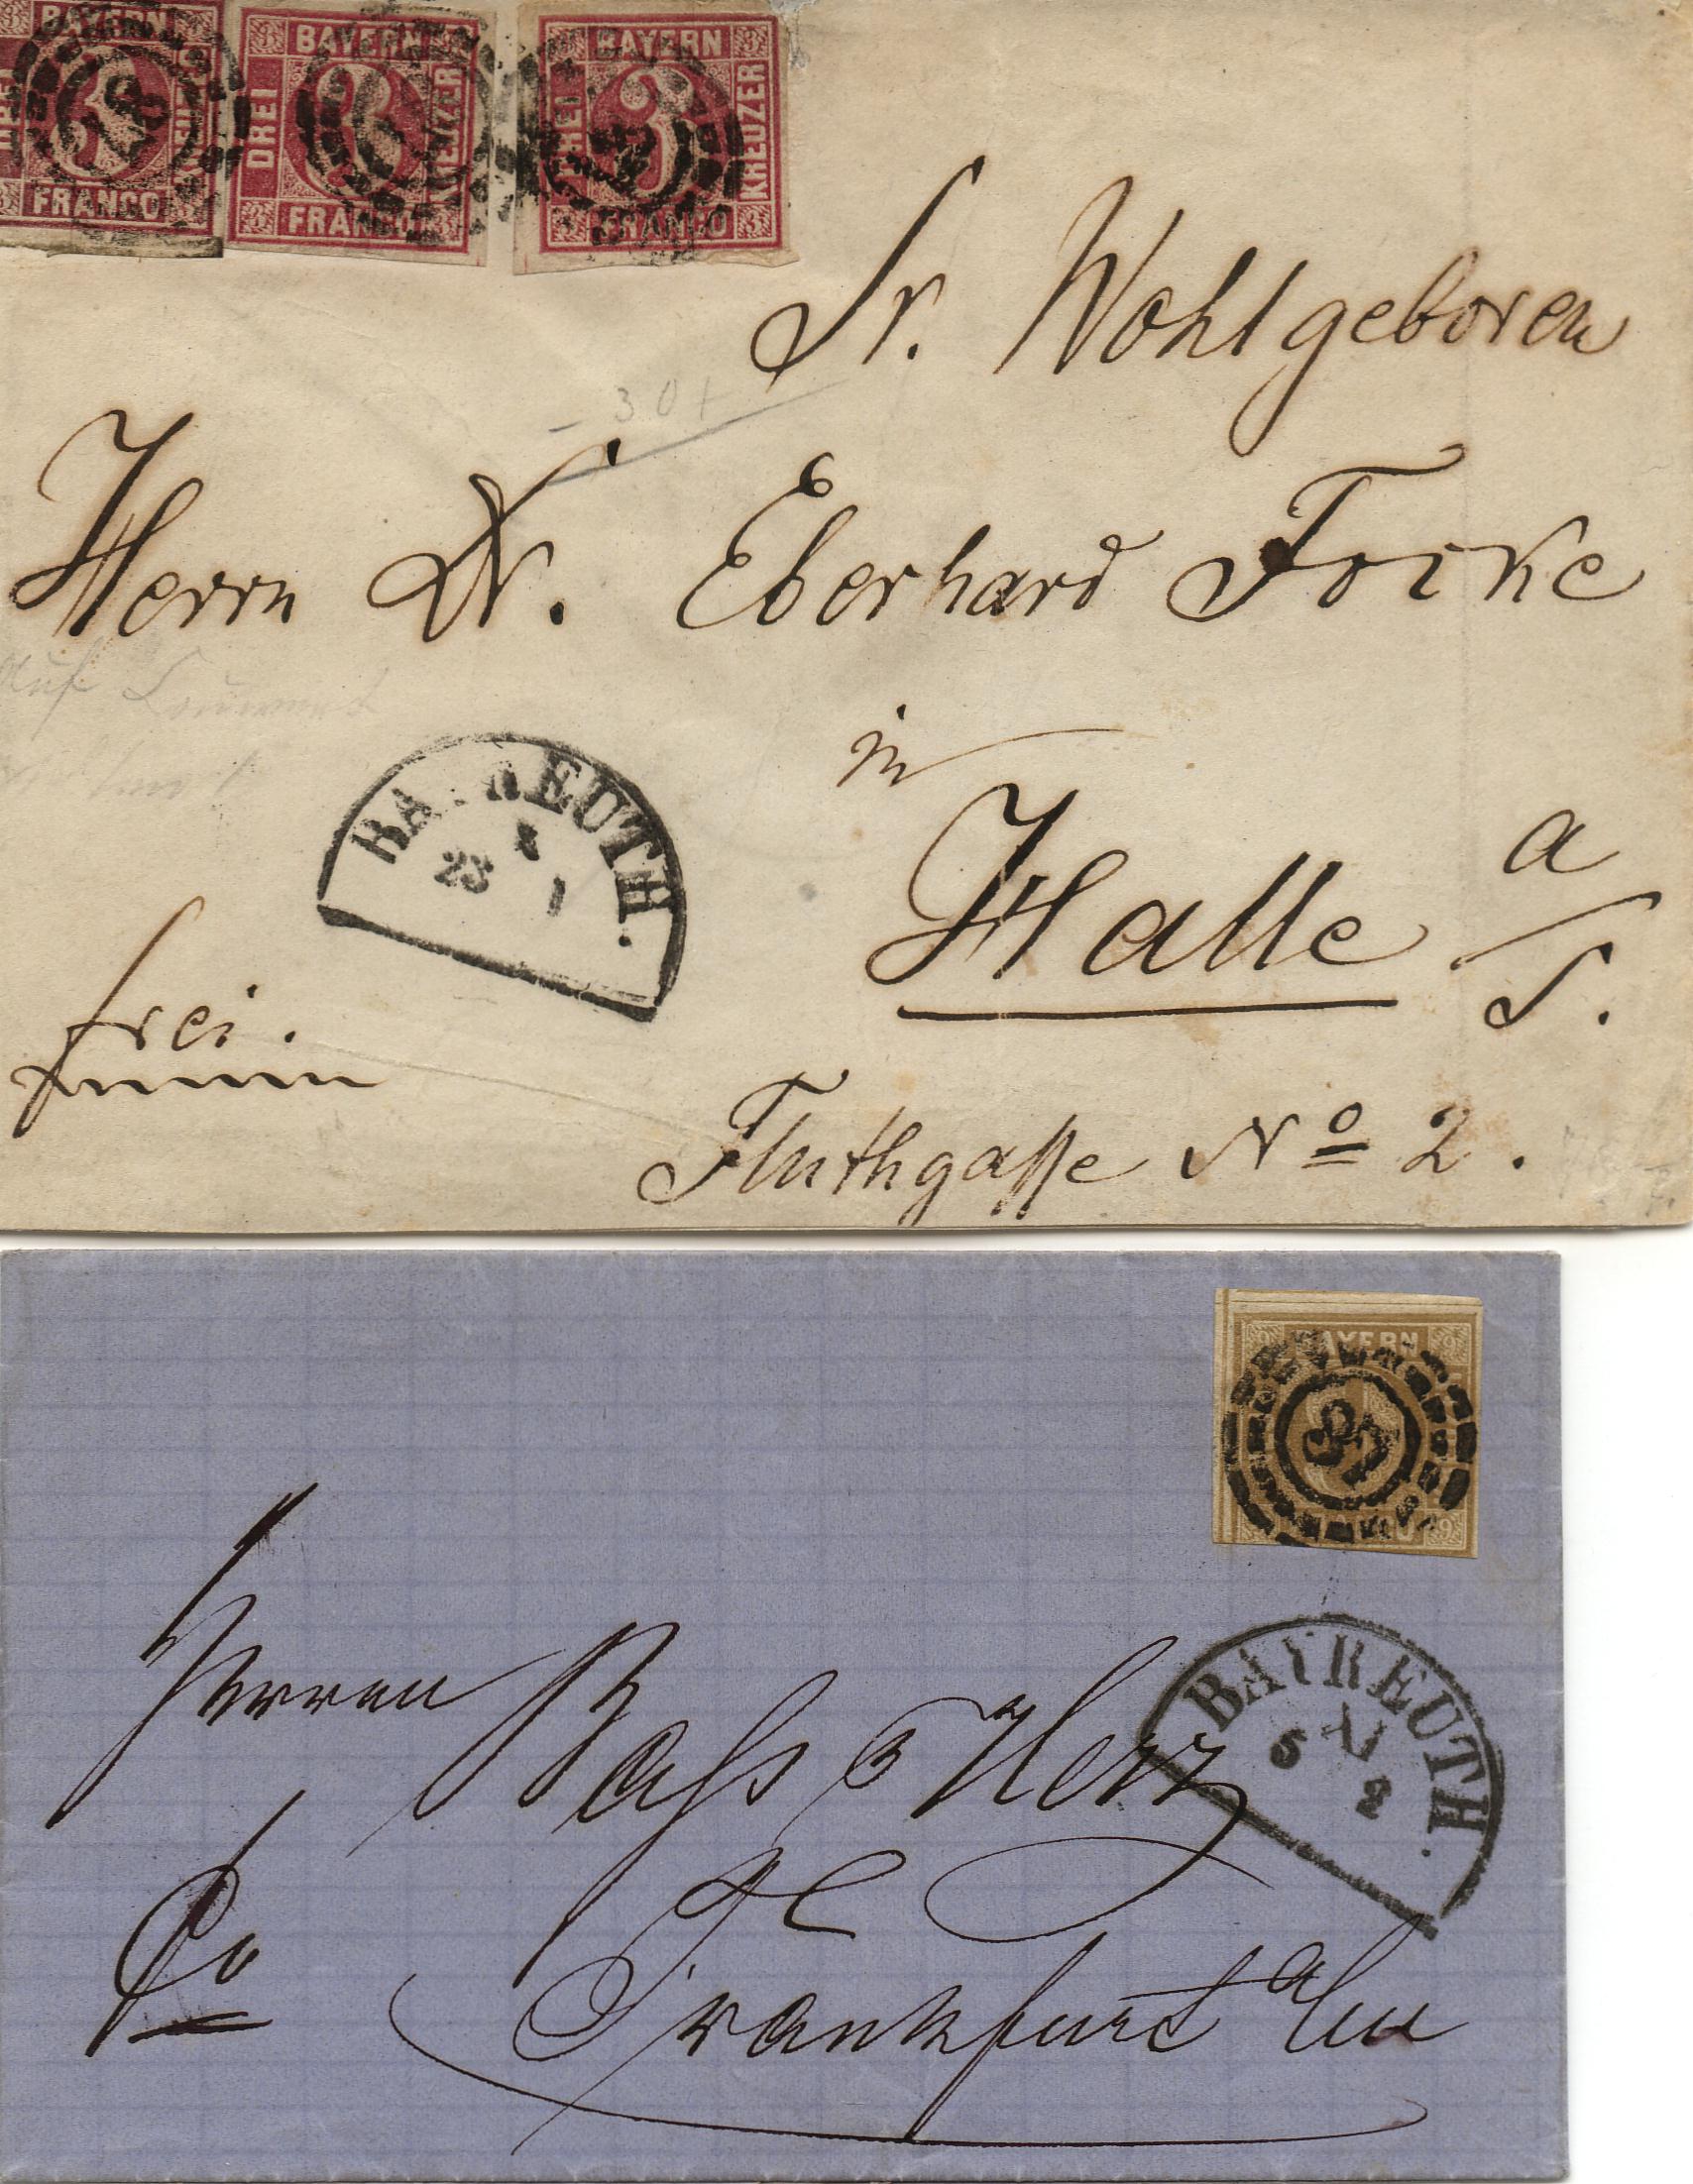 BAYERN
DREI
KREUZER
FRANCO
BAYERN
DREI
KREUZER
FRANCO
BAYERN
DREI
3
KREUZER
FRANCO
Sr. Wohlgeboren
Herrn Dr. Eberhard Focke
in
Halle a/S.
Fluthgasse No 2.
frei.
BAYREUTH.
23 1
BAYERN
9
37
BAYREUTH.
5 XI 2
Herren Bass & Herz
Frankfurt a/m